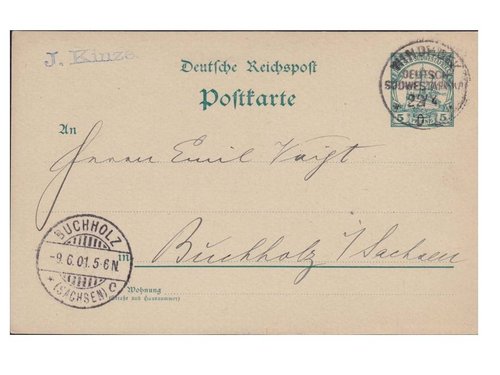 J. Kunze.
Deutsche Reichspost
Postkarte
WINDHOEK
DEUTSCH-
SÜDWESTAFRIKA
22/4
5 5
An
Herrn Emil Voigt
in
Buchholz i/Sachsen
Wohnung
(Straße und Hausnummer)
BUCHHOLZ
-9.6.01.5-6N.
* (SACHSEN) C